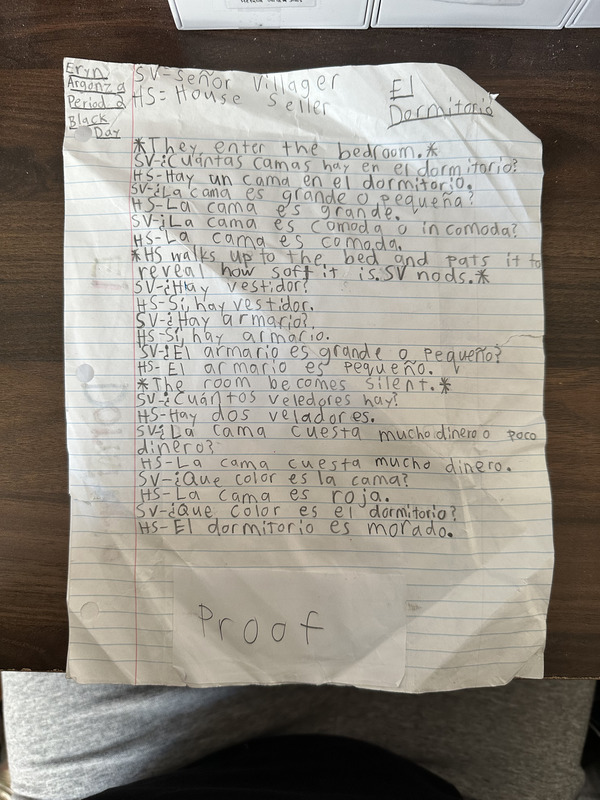 Eryn
Argonza
Period 2
Black
Day
SV-Señor Villager
HS=House Seller
El
Dormitorio
*They enter the bedroom.*
SV-¿Cuántas camas hay en el dormitorio?
HS-Hay un cama en el dormitorio.
SV-¿La cama es grande o pequeña?
HS-La cama es grande.
SV-¿La cama es comoda o incomoda?
HS-La cama es comoda.
*HS walks up to the bed and pats it to
reveal how soft it is. SV nods.*
SV-¿Hay vestidor?
HS-Sí, hay vestidor.
SV-¿Hay armario?
HS-Sí, hay armario.
SV-¿El armario es grande o pequeño?
HS-El armario es pequeño.
*The room becomes silent.*
SV-¿Cuántos veledores hay?
HS-Hay dos veladores.
SV-¿La cama cuesta mucho dinero o poco
dinero?
HS-La cama cuesta mucho dinero.
SV-¿Que color es la cama?
HS-La cama es roja.
SV-¿Que color es el dormitorio?
HS-El dormitorio es morado.
Proof